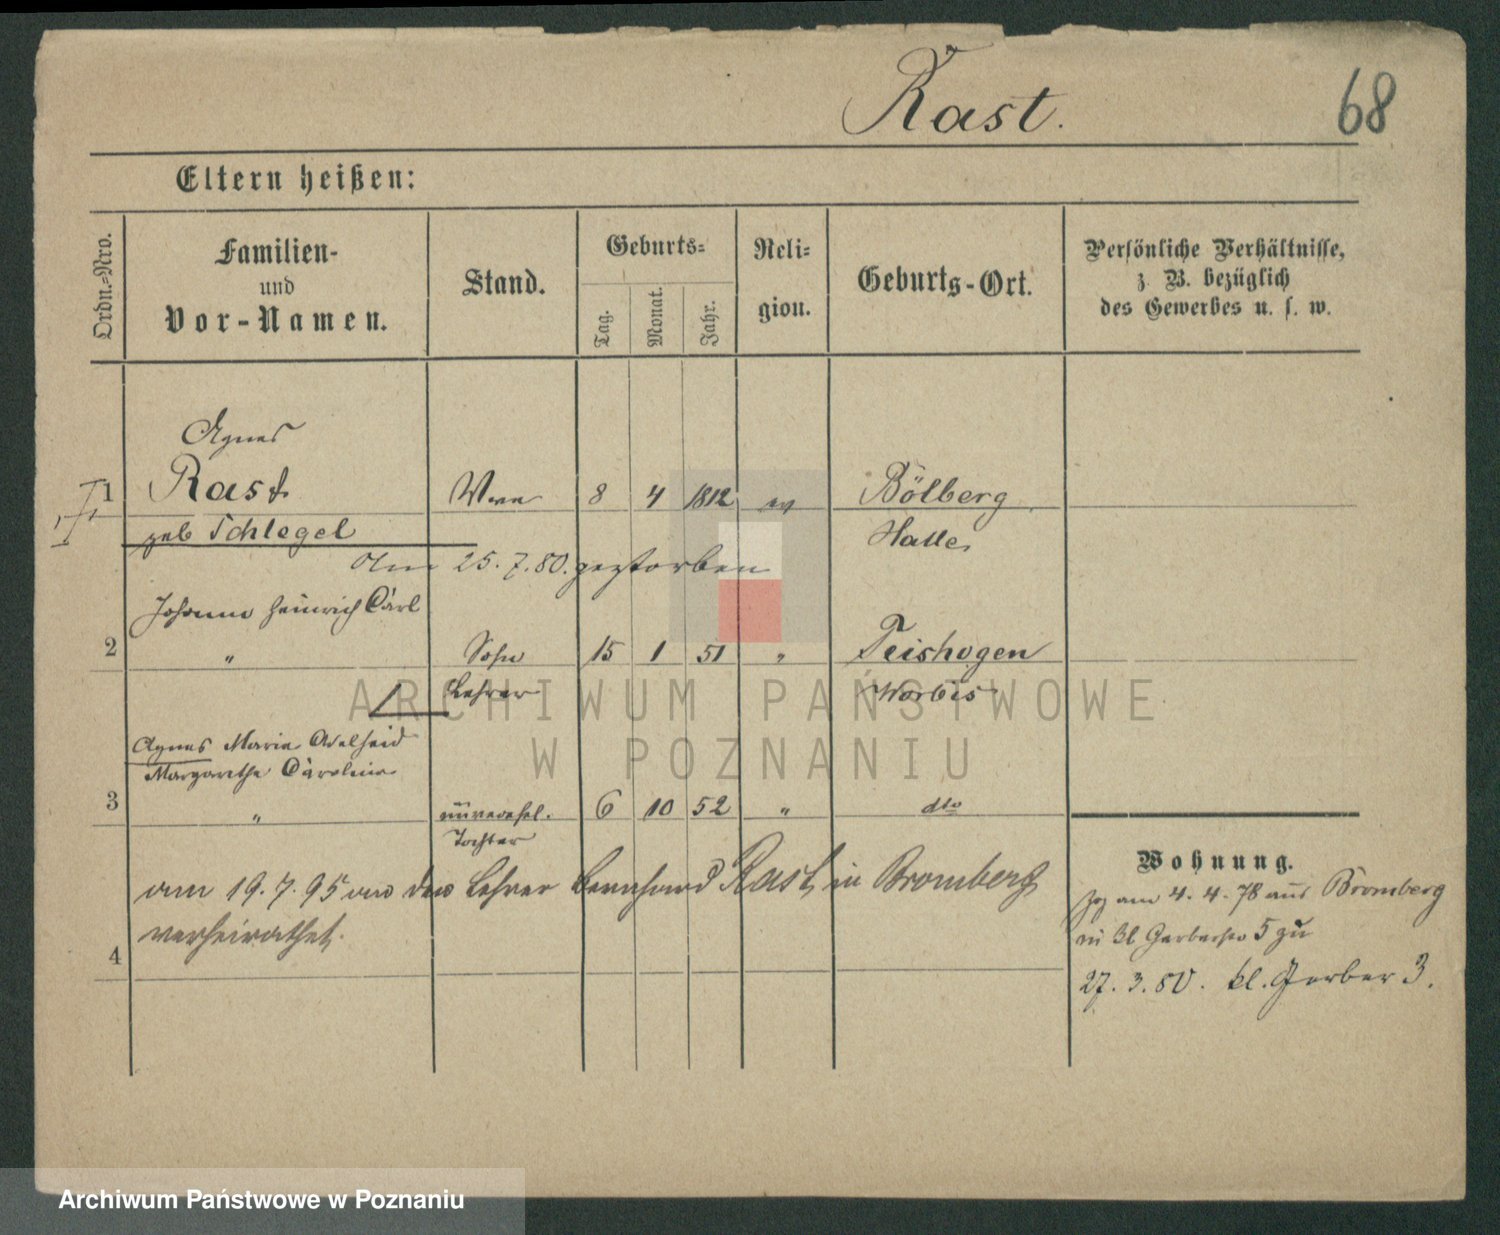 Rast.
68
Eltern heißen:
Ordn.-Nro.
Familien-
und
Vor-Namen.
Stand.
Geburts-
Tag.
Monat.
Jahr.
Reli-
gion.
Geburts-Ort.
Persönliche Verhältnisse,
z. B. bezüglich
des Gewerbes u. s. w.
Agnes
1 Rast Wwe 8 4 1812 ev Bölberg
geb Schlegel Halle
Am 25.7.80. gestorben
Johann Heinrich Carl
2 " Sohn 15 1 51 " Teishogen
Lehrer Worbis
Agnes Marie Adelheid
Margarethe Caroline
3 " unverehel. 6 10 52 " dto
Tochter
am 19.7.95 an den Lehrer Bernhard Rast in Bromberg
verheirathet.
4
Wohnung.
am 4.4.78 aus Bromberg
Gerberstr 5 zu
27.3.80. kl. Gerber 3.
ARCHIWUM PAŃSTWOWE
W POZNANIU
Archiwum Państwowe w Poznaniu